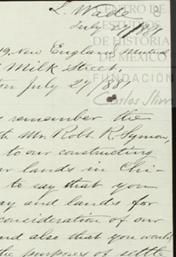 L. Wade
July 27/1881
New England Mutual
Milk Street
ton July 27/1881
remember the
Mr. Robt. R. Symon,
to our constructing
r lands in Chi-
to say that you
ay and lands for
consideration of our
nd also that you would
the purposes of settle
CENTRO DE
ESTUDIOS
DE HISTORIA
DE MÉXICO
FUNDACIÓN
Carlos Slim